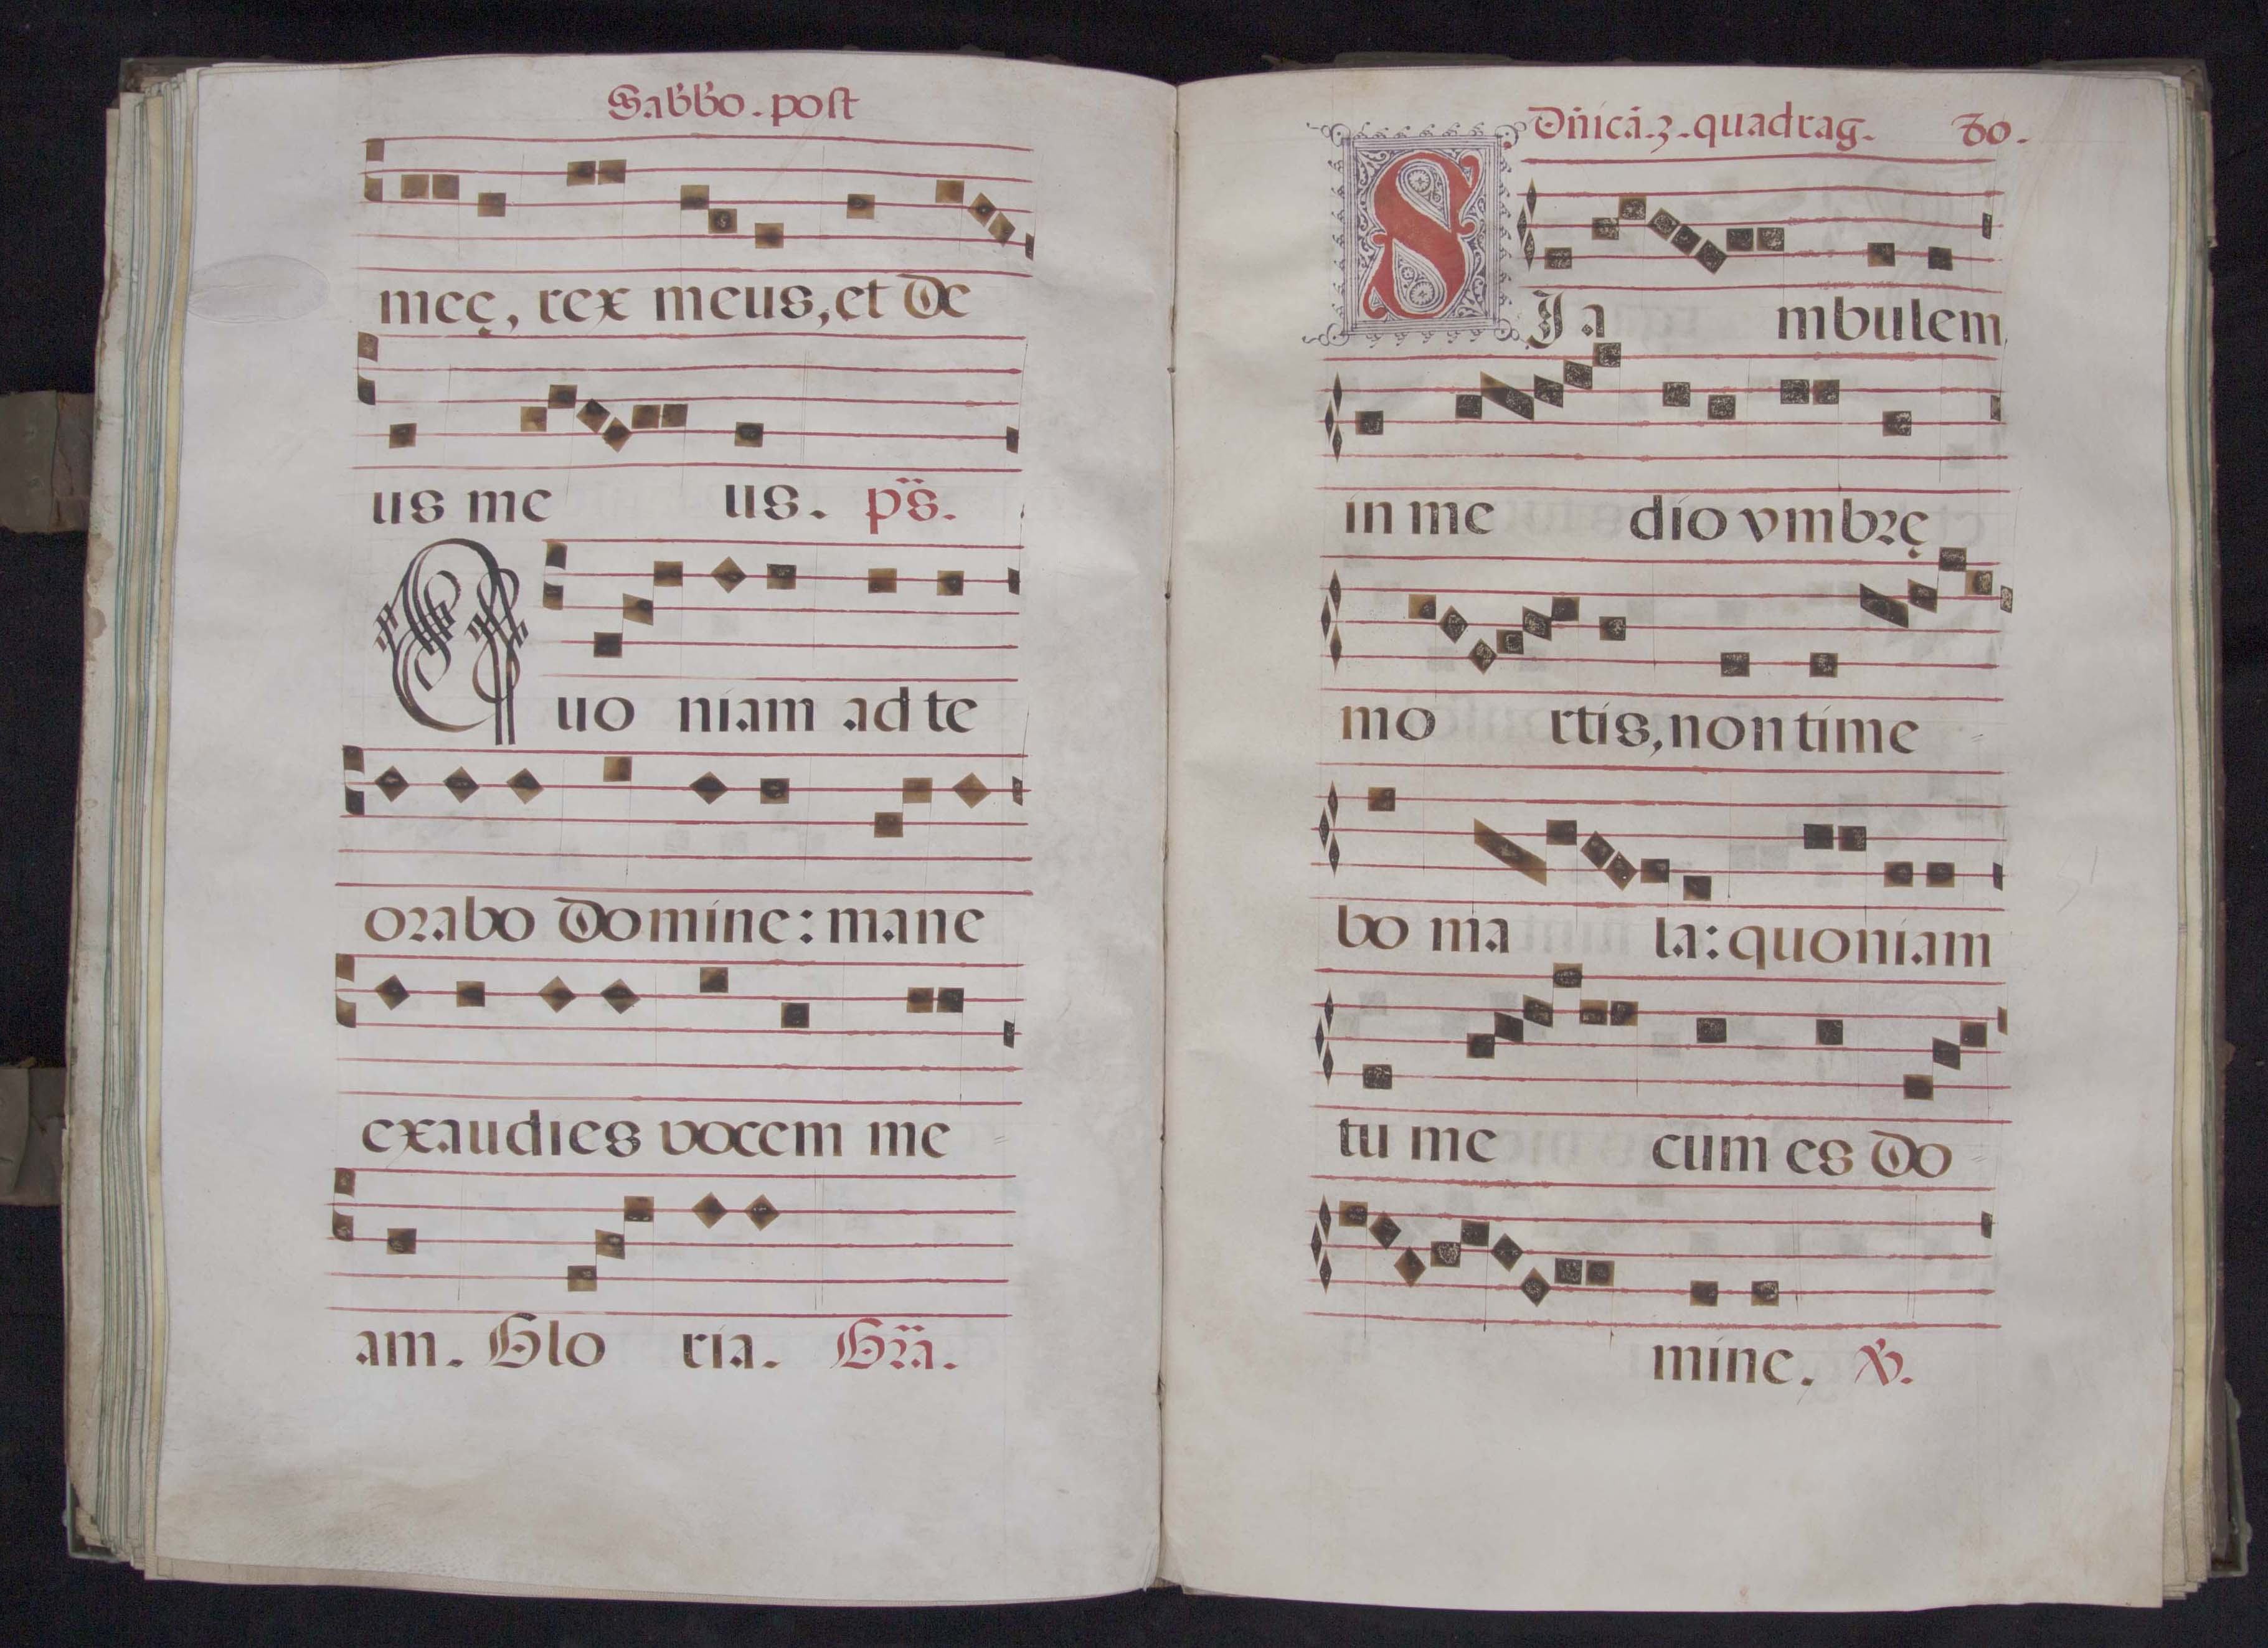 Sabb̃o. post
meę, rex meus, et De
us me us. ps̈.
Quo niam ad te
orabo Domine: mane
exaudies vocem me
am. Glo ria. Gr̈a.
Dñicã. 3. quadrag. 80.
SJ a mbulem
in me dio vmbrę
mo rtis, non time
bo ma la: quoniam
tu me cum es Do
mine. ℣.